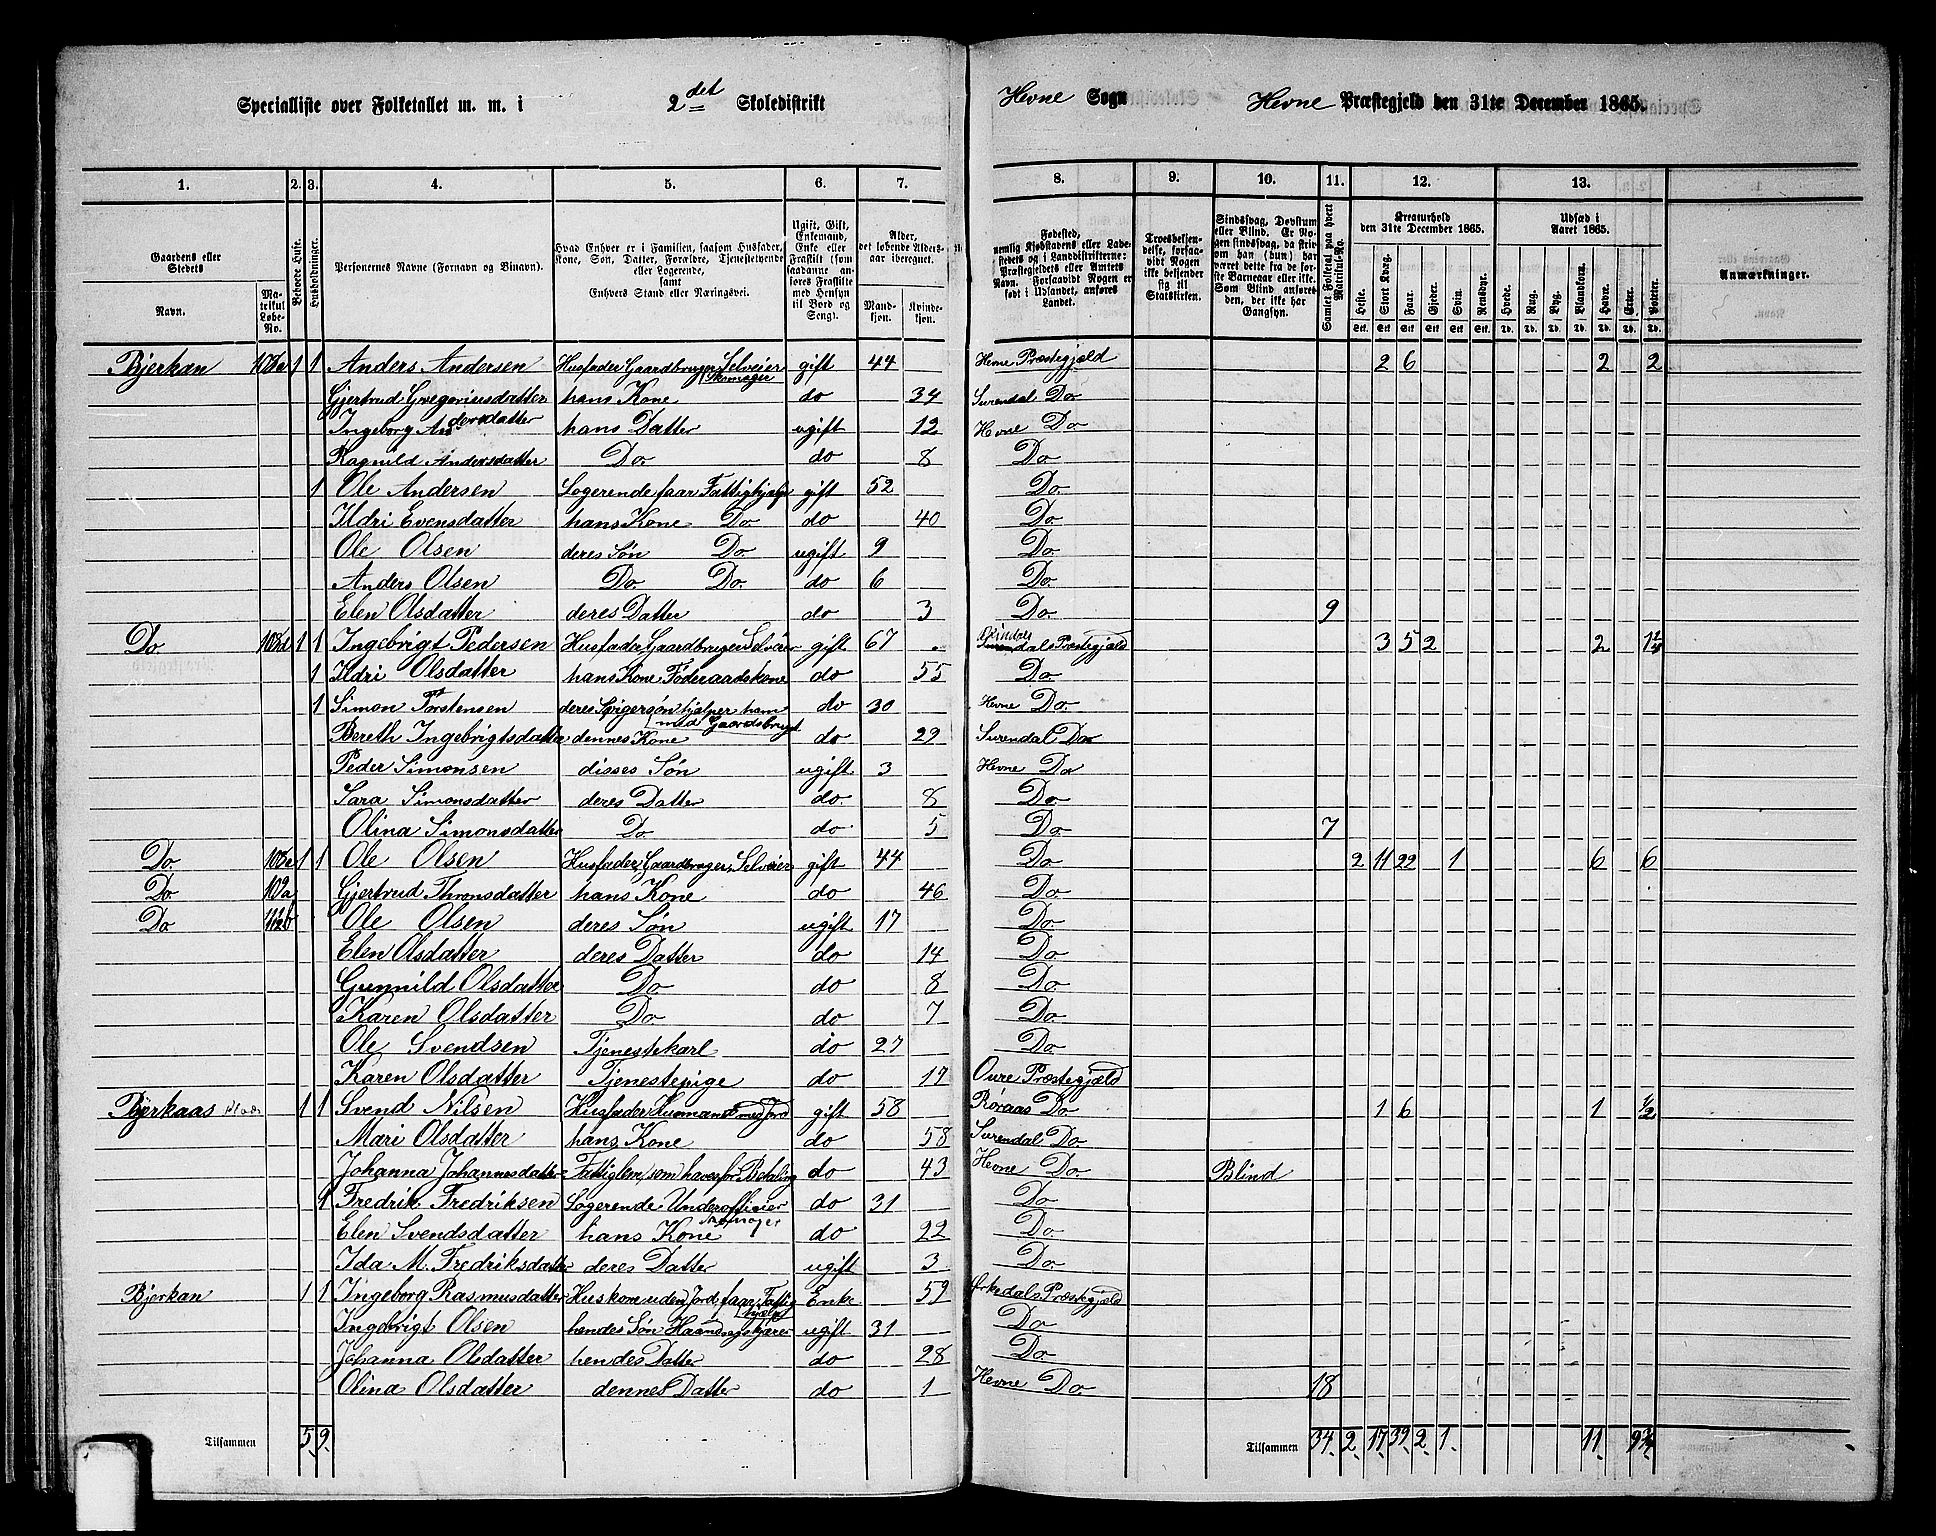 Specialliste over Folketallet m. m. i 2det Skoledistrikt Hevne Sogn Hevne Præstegjeld den 31te December 1865.
1. 2. 3. 4. 5. 6. 7. 8. 9. 10. 11. 12. 13.
Gaardens eller Stedets Navn. Matrikul Løbe-No. Beboede Huse. Husholdninger. Personernes Navne (Fornavn og Binavn).
Hvad Enhver er i Familien, saasom Husfader, Kone, Søn, Datter, Forældre, Tjenestetyende eller Logerende, samt Enhvers Stand eller Næringsvei.
Ugift, Gift, Enkemand, Enke eller Fraskilt (som saadanne anføres Fraskilte med Hensyn til Bord og Seng).
Alder, det løbende Alders-aar iberegnet. Mand-kjøn. Kvinde-kjøn.
Fødested, nemlig Kjøbstadens eller Ladestedets og i Landdistrikterne: Præstegjeldets eller Amtets Navn. Forsaavidt Nogen er født i Udlandet, anføres Landet.
Troesbekjendelse, forsaavidt Nogen ikke bekjender sig til Statskirken.
Sindssvag, Døvstum eller Blind. Er Nogen sindssvag, da skriv om han (hun) har været dette fra de første Barneaar eller ikke. Som Blind anføres den, der ikke har Gangsyn.
Samlet Folketal paa hvert Matrikul-No.
Kreaturhold den 31te December 1865. Heste. Stort Kvæg. Faar. Gjeder. Svin. Rensdyr.
Udsæd i Aaret 1865. Hvede. Rug. Byg. Blandkorn. Havre. Erter. Poteter.
Anmærkninger.
Bjerkan 1 1 Anders Andersen Husfader Gaardbruger Selveier Skomager gift 44 Hevne Præstegjæld 2 6 2 2
Gjertrud Gregoriusdatter hans Kone do 34 Surendal Do
Ingeborg Andersdatter hans Datter ugift 12 Hevne Do
Ragnild Andersdatter Do. do 8 Do
1 Ole Andersen Logerende faar Fattighjælp gift 52 Do.
Ildri Evensdatter hans Kone Do do 40 Do.
Ole Olsen deres Søn Do. ugift 9 Do.
Anders Olsen Do. Do. do 6 Do.
Elen Olsdatter deres Datter do 3 Do. 9
Do 1 1 Ingebrigt Pedersen Husfader Gaardbruger Selveier gift 67 Rindals Præstegjæld 3 5 2 2
1 Ildri Olsdatter hans Kone Føderaadskone do 55 Do.
1 Simon Torstensen deres Svigersøn hjælper ham med Gaardsbruget do 30 Hevne Do.
Bereth Ingebrigtsdatter dennes Kone do 29 Surendal Do
Peder Simonsen disses Søn ugift 3 Hevne Do
Sara Simonsdatter deres Datter do. 8 Do
Olina Simonsdatter Do do. 5 Do 7
Do 1 1 Ole Olsen Husfader, Gaardbruger, Selveier gift 44 Do 2 11 22 1 6 6
Do. 109a Gjertrud Thronsdatter hans Kone do 46 Do.
Do 112b Ole Olsen deres Søn ugift 17 Do
Elen Olsdatter deres Datter do 14 Do
Gunnild Olsdatter Do do 8 Do
Karen Olsdatter Do. do 7 Do
Ole Svendsen Tjenestekarl do 27 Do.
Karen Olsdatter Tjenestepige do 17 Oure Præstegjæld
Bjerkaas Plads 1 1 Svend Nilsen Husfader Husmand med Jord gift 58 Røraas Do. 1 6 1 1/2
Mari Olsdatter hans Kone do 58 Surendal Do.
Johanna Johannesdatter Fattiglem, som haves for Betaling do 43 Hevne Do. Blind
1 Fredrik Fredriksen Logerende Underofficier Skomager do 31 Do
Elen Svendsdatter hans Kone do 22 Do
Ida M. Fredriksdatter deres Datter ugift 3 Do
Bjerkan 1 1 Ingeborg Rasmusdatter Huskone uden Jord, faar Fattighjælp Enke 59 Ørkedals Præstegjæld
Ingebrigt Olsen hendes Søn ugift 31 Do
Johanna Olsdatter hendes Datter do 28 Do.
Olina Olsdatter dennes Datter do 1 Hevne Do 18
Tilsammen 5. 9. Tilsammen 34. 2. 17. 39. 2. 1. 11. 9 3/4